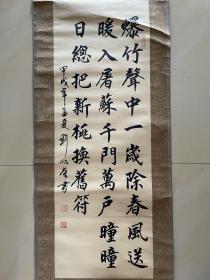 爆竹聲中一歲除春風送
暖入屠蘇千門萬戶曈曈
日總把新桃換舊符
甲戌年孟夏劉
書